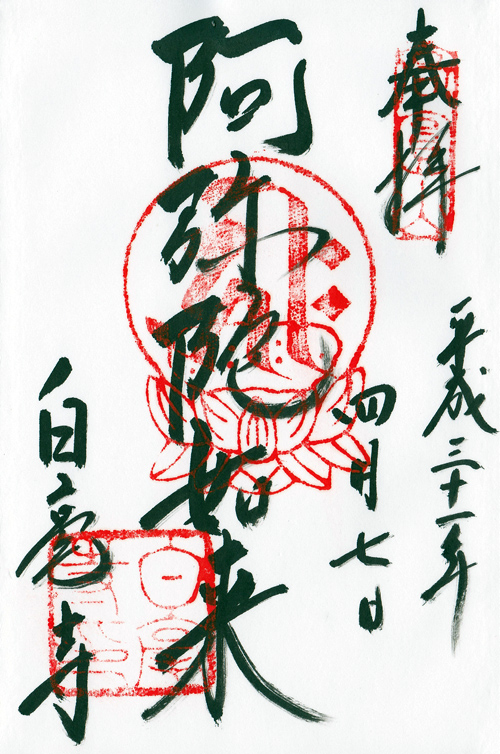 奉拝
平成三十一年
四月七日
阿弥陀如来
白毫寺